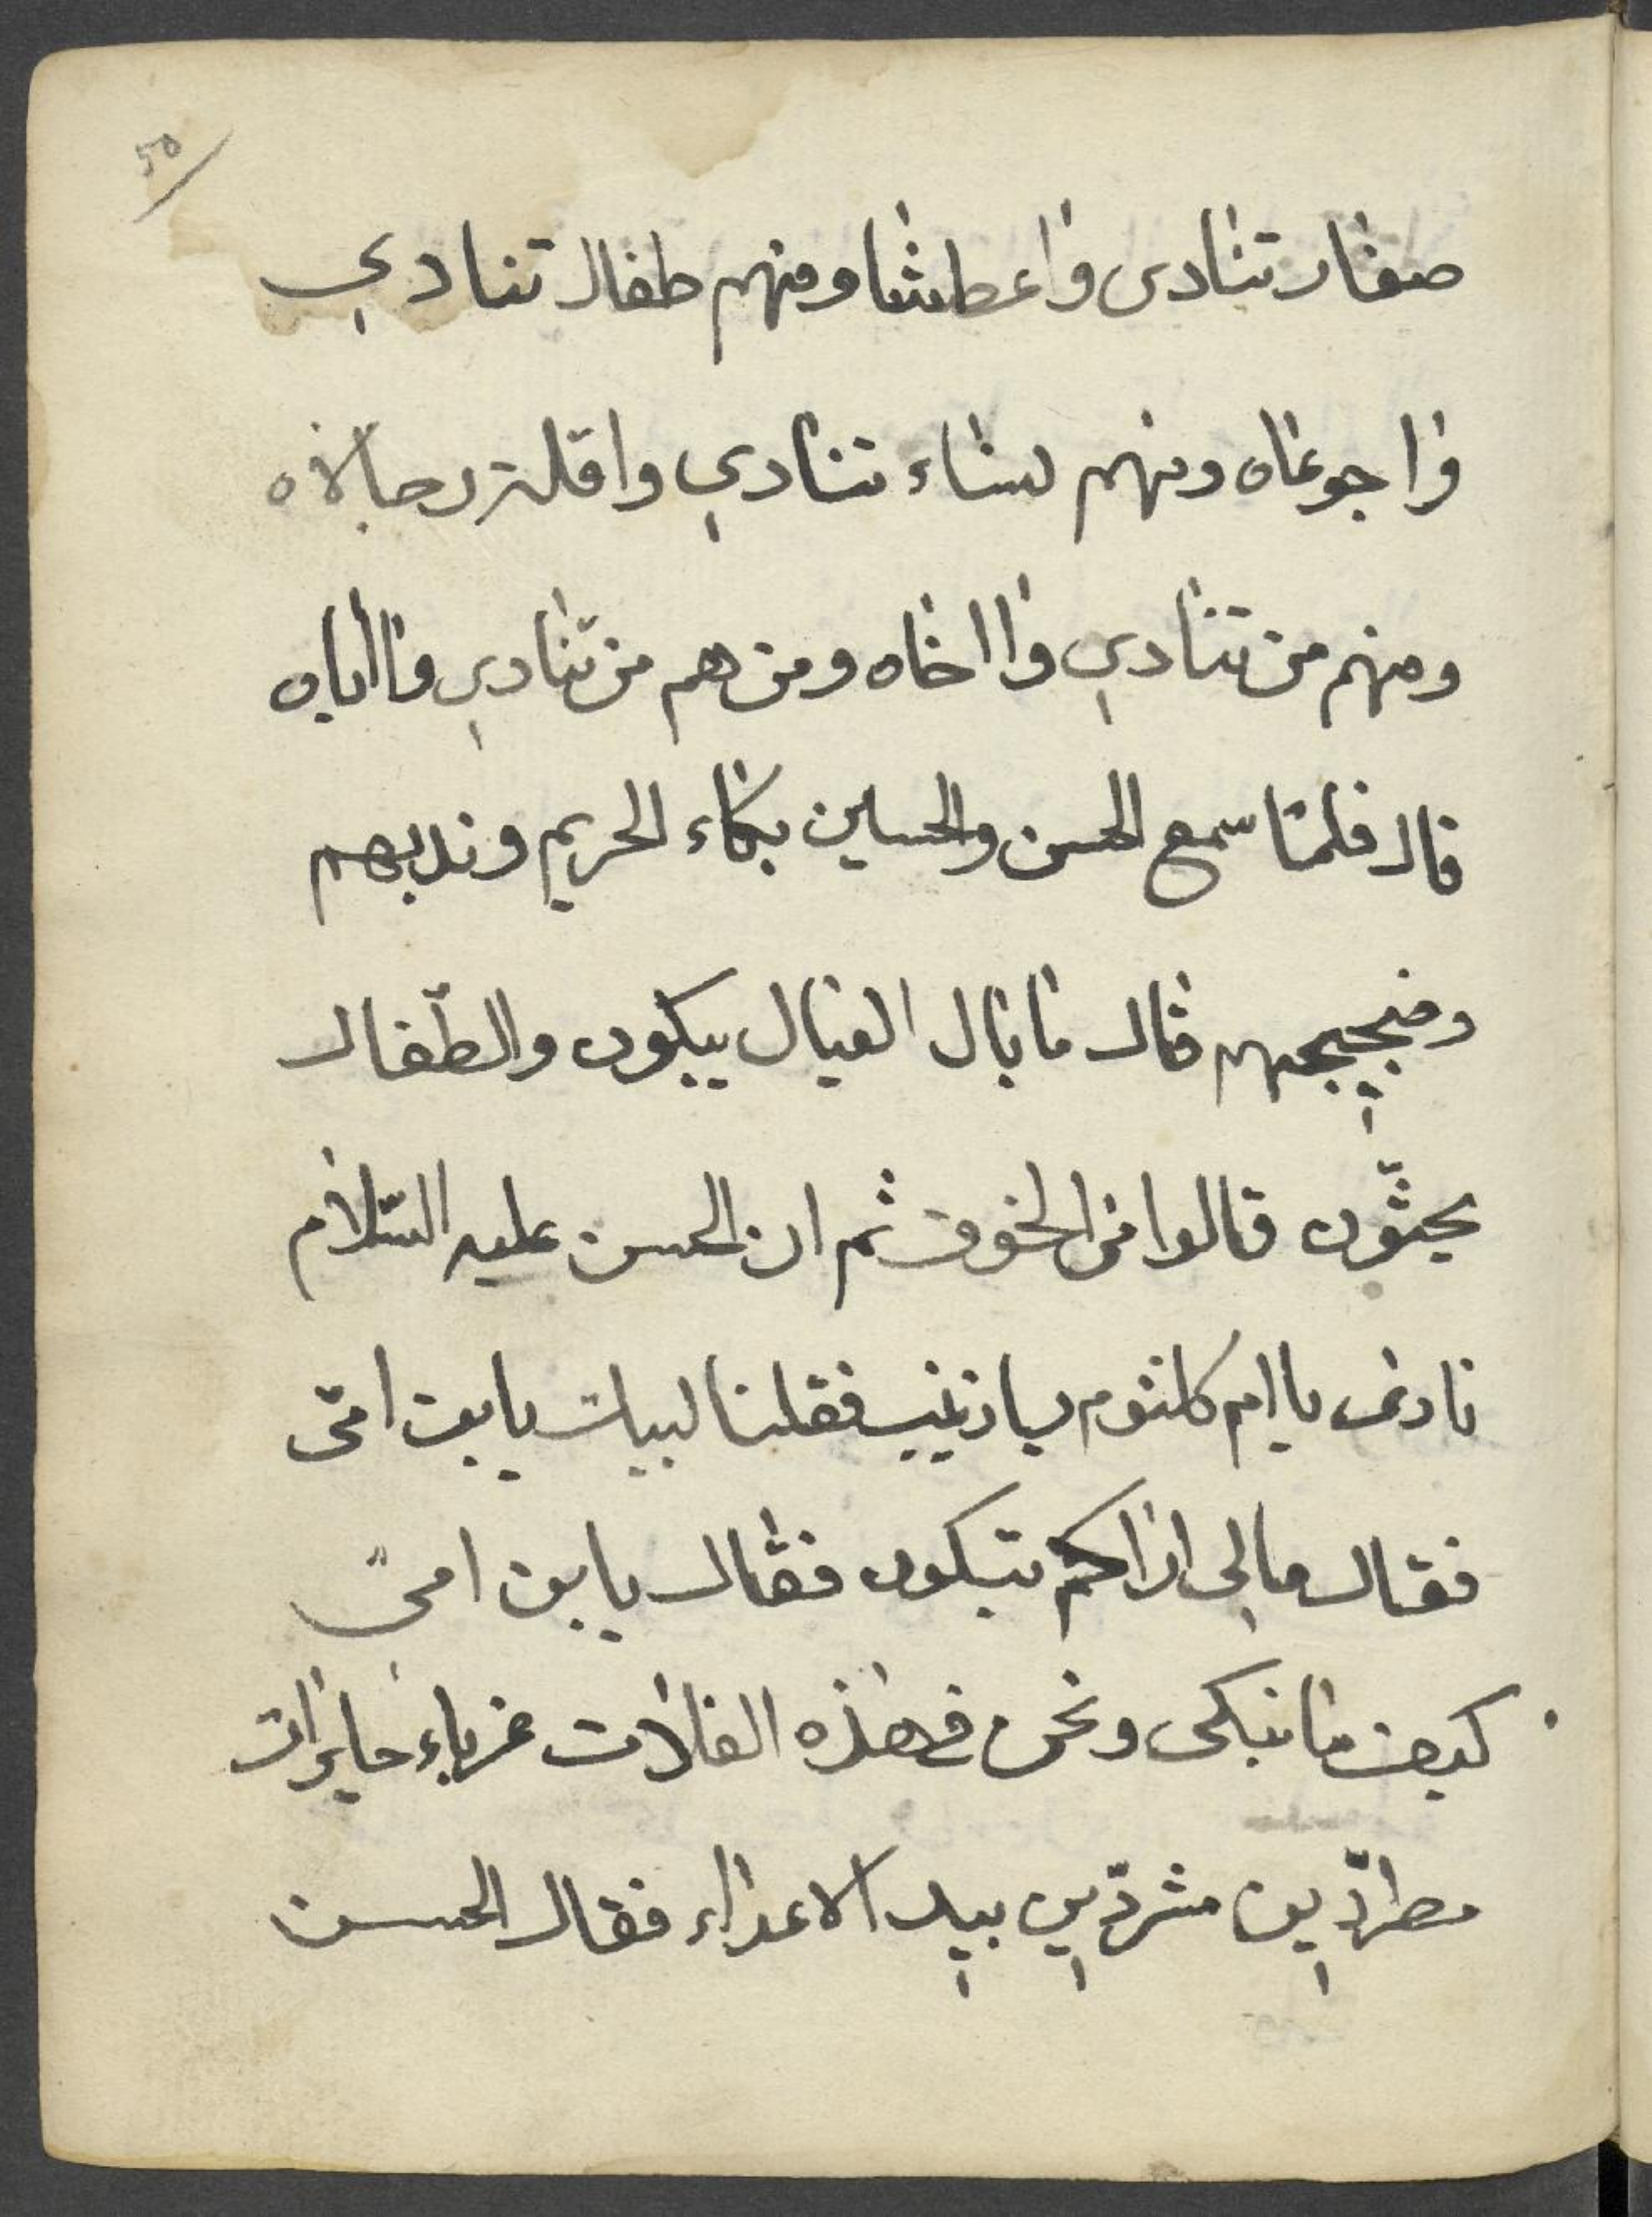 50/
صغار تنادى واعطشا ومنهم طفال تنادي
واجوعاه ومنهم نساء تنادي واقلة رجالاه
ومنهم من تنادي وااخاه ومن هم من تنادي واأباه
قال فلمّا سمع الحسن والحسين بكاء الحريم وندبهم
وضجيجهم قال ما بال العيال يبكون والطّفال
يحنّون قالوا من الخوف ثم ان الحسن عليه السّلام
نادى يا ام كلثوم يا زينب فقلنا لبيك يابن امّى
فقال مالي اراكم تبكون فقال يابن اميّ
كيف ما نبكى ونحن في هذه الفلات غرباء حايرات
مطرّدين مشرّدين بيد الاعداء فقال الحسن